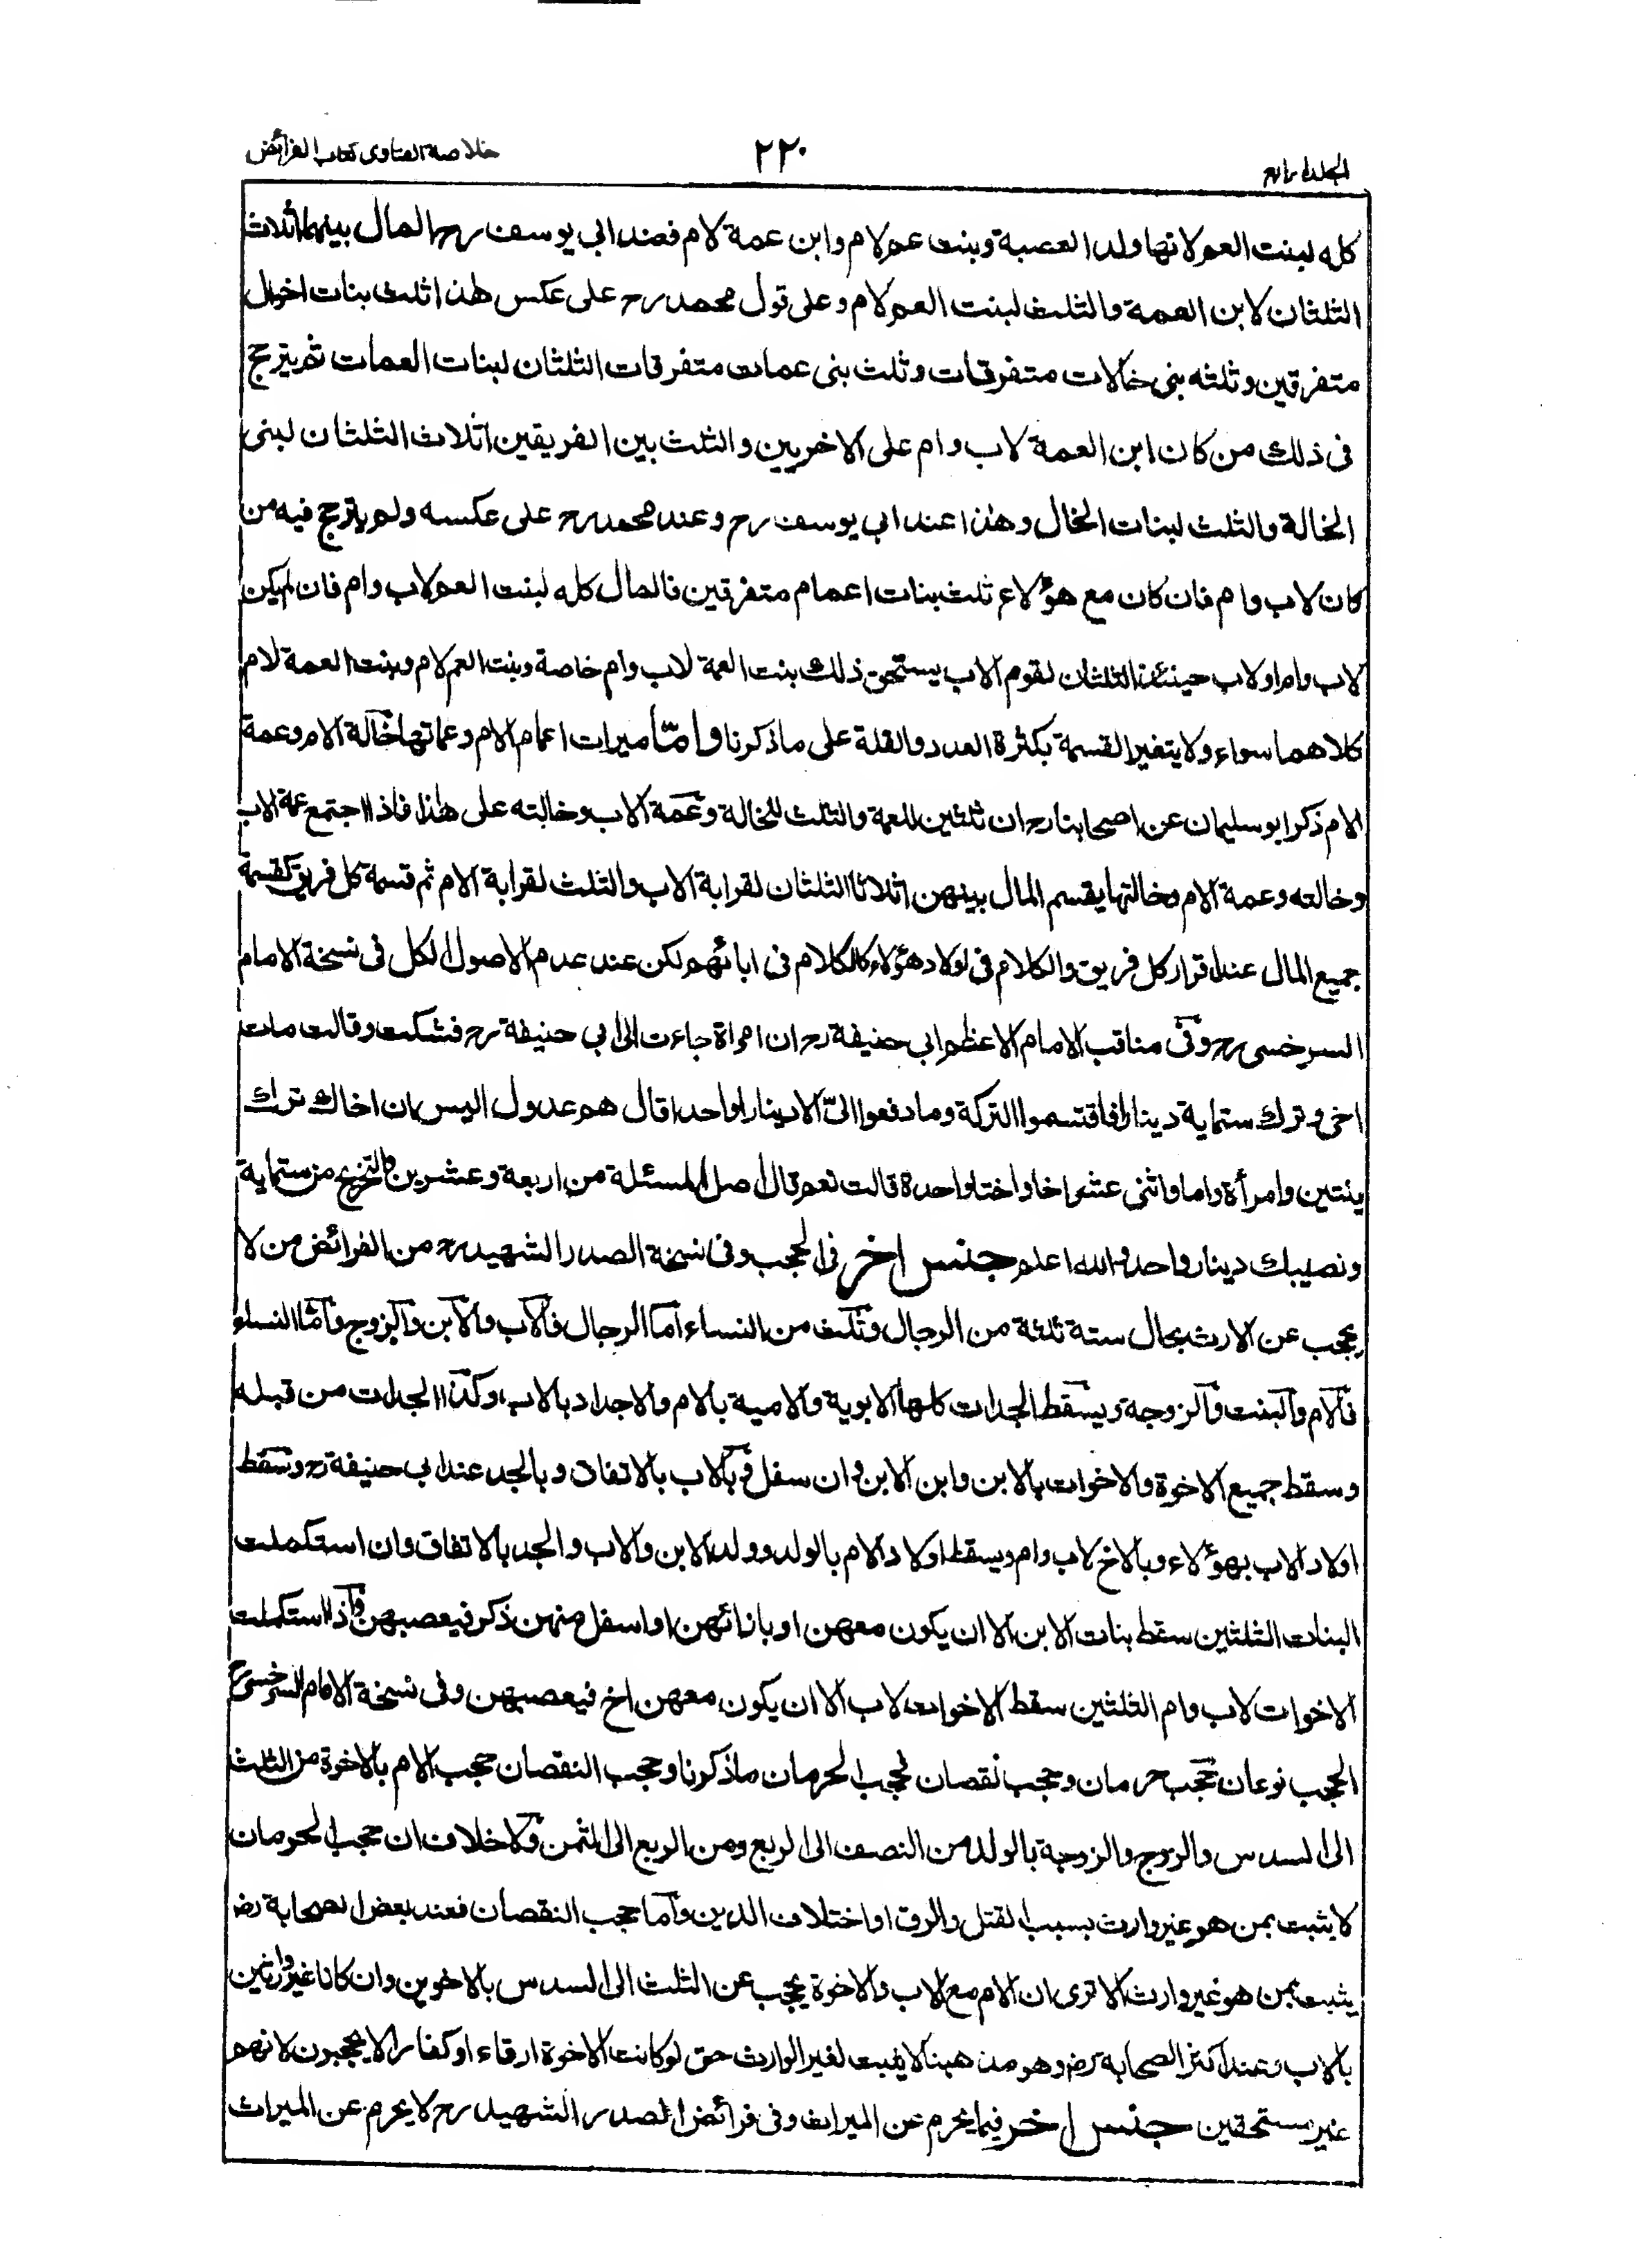 المجلد الرابع
٢٢٠
خلاصة الفتاوى كتاب الفرائض
كله لبنت العم لانها ولد العصبة وبنت عم لام وابن عمة لام فعند ابي يوسف رح المال بينهما اثلاث
الثلثان لابن العمة والثلث لبنت العم لام وعلى قول محمد رح على عكس هذا ثلث بنات اخوال
متفرقين وثلثه بنى خالات متفرقات وثلث بنى عمات متفرقات الثلثان لبنات العمات ثم يترجح
فى ذلك من كان ابن العمة لاب وام على الاخريين والثلث بين الفريقين اثلاث الثلثان لبنى
الخالة والثلث لبنات الخال وهذا عند ابي يوسف رح وعند محمد رح على عكسه ولم يترجح فيه من
كان لاب وام فان كان مع هؤلاء ثلث بنات اعمام متفرقين فالمال كله لبنت العم لاب وام فان لم يكن
لاب وام او لاب حينئذ الثلثان لقوم الاب يستحق ذلك بنت العمة لاب وام خاصة وبنت العم لام وبنت العمة لام
كلاهما سواء ولا يتغير القسمة بكثرة العدد والقلة على ما ذكرنا واما ميراث اعمام الام وعماتها خالة الام وعمة
الام ذكر ابو سليمان عن اصحابنا رح ان ثلثين للعمة والثلث للخالة وعمة الاب وخالته على هذا فاذا اجتمع عمة الاب
وخالته وعمة الام وخالتها يقسم المال بينهن اثلاثا الثلثان لقرابة الاب والثلث لقرابة الام ثم قسمة كل فريق كقسمة
جميع المال عند اقرار كل فريق والكلام فى اولاد هؤلاء كالكلام فى ابائهم لكن عند عدم الاصول الكل فى نسخة الامام
السرخسى رح وفى مناقب الامام الاعظم ابى حنيفة رح ان امراة جاءت الى ابي حنيفة رح فشكت وقالت مات
اخى وترك ستماية دينار فاقتسموا التركة وما دفعوا الىّ الا دينارا واحدا قال هم عدول اليس ان اخاك ترك
بنتين وامرأة واما واثنى عشر اخا واختا واحدة قالت نعم قال اصل المسئلة من اربعة وعشرين والتخريج من ستماية
ونصيبك دينار واحد والله اعلم جنس اخر فى الحجب وفى نسخة الصدر الشهيد رح من الفرائض من لا
يحجب عن الارث بحال ستة ثلثة من الرجال وثلث من النساء اما الرجال فالاب والابن والزوج واما النساء
فالام والبنت والزوجة ويسقط الجدات كلها الابوية والامية بالام والاجداد بالاب وكذا الجدات من قبله
وسقط جميع الاخوة والاخوات بالابن وابن الابن وان سفل وبالاب بالاتفاق وبالجد عند ابي حنيفة رح وسقط
اولاد الاب بهؤلاء وبالاخ لاب وام ويسقط اولاد الام بالولد وولد الابن والاب والجد بالاتفاق وان استكملت
البنات الثلثين سقط بنات الابن الا ان يكون معهن او بازائهن او اسفل منهن ذكر فيعصبهن واذا استكملت
الاخوات لاب وام الثلثين سقط الاخوات لاب الا ان يكون معهن اخ فيعصبهن وفى نسخة الامام السرخسى رح
الحجب نوعان حجب حرمان وحجب نقصان فحجب الحرمان ما ذكرنا وحجب النقصان حجب الام بالاخوة من الثلث
الى السدس والزوج والزوجة بالولد من النصف الى الربع ومن الربع الى الثمن ولا خلاف ان حجب الحرمان
لا يثبت بمن هو غير وارث بسبب القتل والرق او اختلاف الدين واما حجب النقصان فعند بعض الصحابة رض
يثبت بمن هو غير وارث الا ترى ان الام مع الاب والاخوة يحجب عن الثلث الى السدس بالاخوين وان كانا غير وارثين
بالاب وعند اكثر الصحابه رض وهو مذهبنا لا يثبت لغير الوارث حتى لو كانت الاخوة ارقاء او كفارا لا يحجبون لانهم
غير مستحقين جنس اخر فيما يحرم عن الميراث وفى فرائض الصدر الشهيد رح لا يحرم عن الميراث